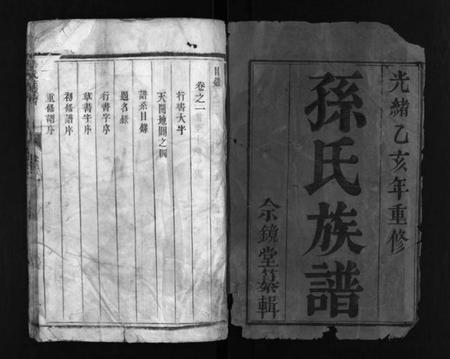 光緒乙亥年重修
孫氏族譜
纂輯
目錄
卷之一
行書大字
天開地闢之圖
譜系目錄
題名錄
行書字序
草書字序
初修譜序
重修譜序